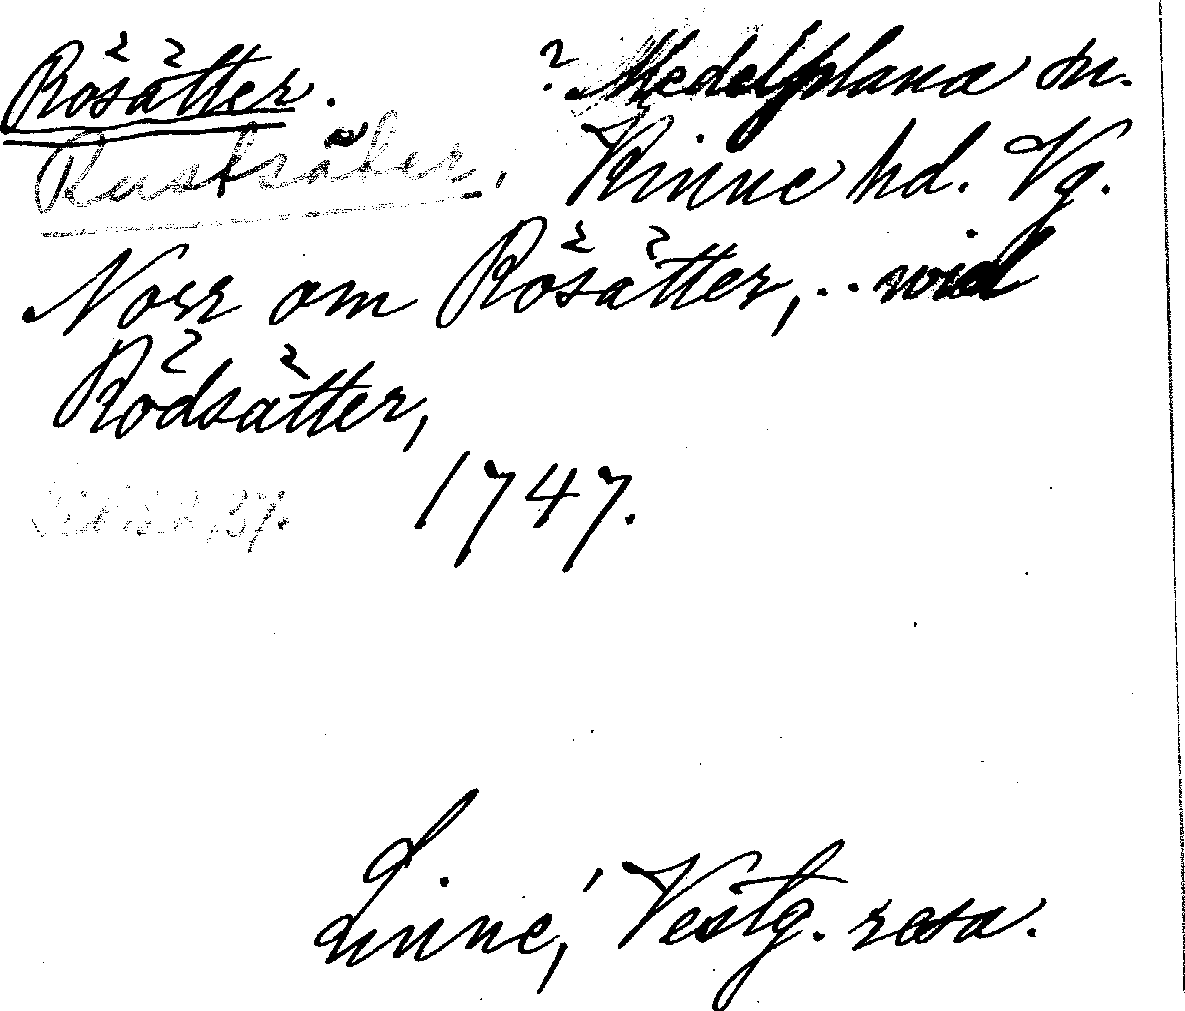 Rösätter. ? Medelplana sn.
Rustsäter. Kinne hd. Vg.
Norr om Rösätter, .. wid
Rödsätter,
1747.
Linné, Vestg. resa.